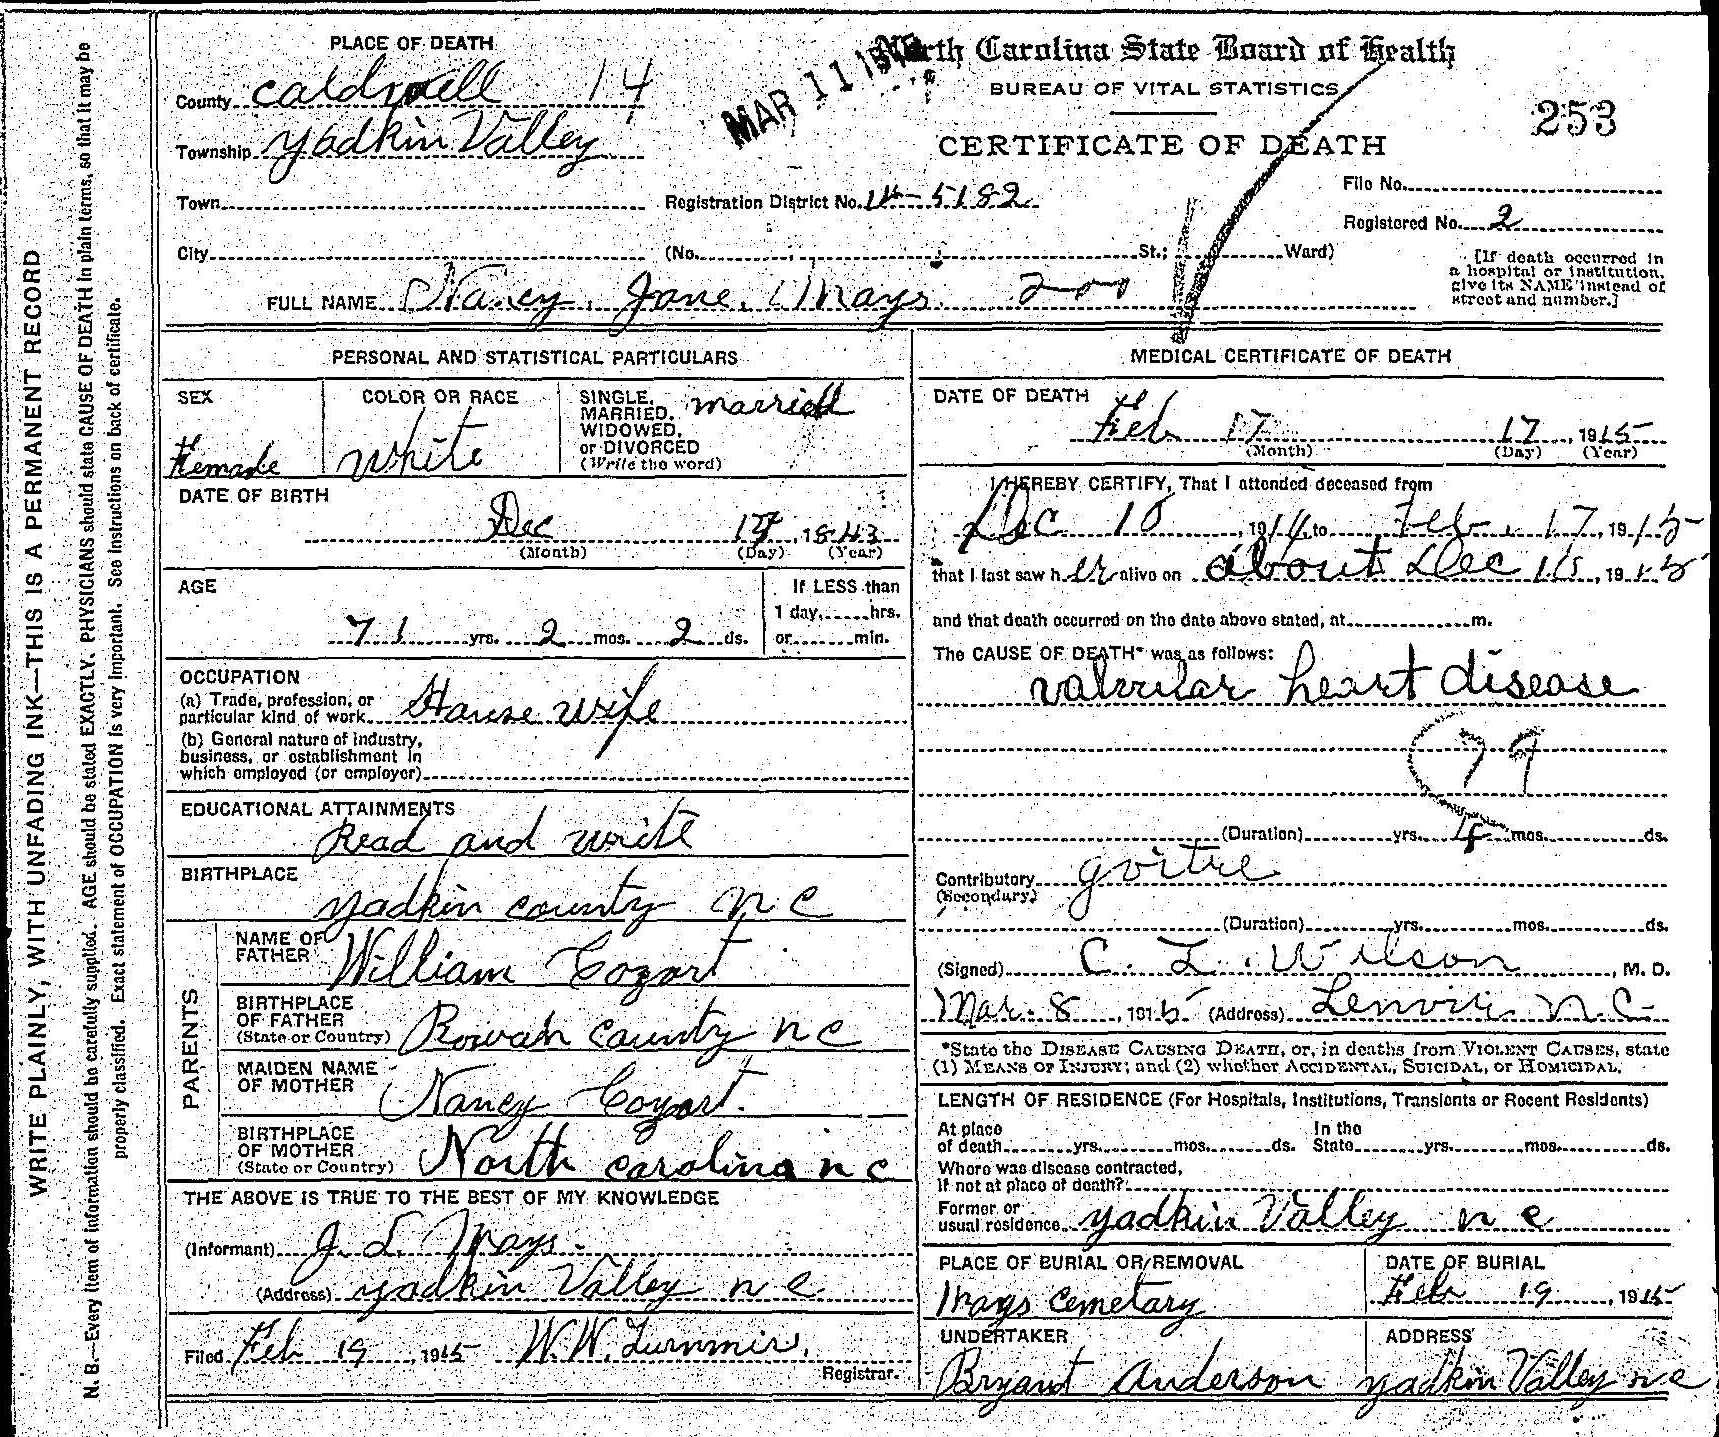 WRITE PLAINLY, WITH UNFADING INK—THIS IS A PERMANENT RECORD
N. B.—Every item of information should be carefully supplied. AGE should be stated EXACTLY. PHYSICIANS should state CAUSE OF DEATH in plain terms, so that it may be
properly classified. Exact statement of OCCUPATION is very important. See Instructions on back of certificate.
PLACE OF DEATH
County Caldwell 14
Township Yadkin Valley
Town
City
MAR 11
North Carolina State Board of Health
BUREAU OF VITAL STATISTICS
CERTIFICATE OF DEATH
253
Registration District No. 14-5182
File No.
Registered No. 2
(No. St.; Ward)
[If death occurred in
a hospital or institution,
give its NAME instead of
street and number.]
FULL NAME Nancy Jane Mays 200
PERSONAL AND STATISTICAL PARTICULARS
SEX
Female
COLOR OR RACE
White
SINGLE,
MARRIED,
WIDOWED,
or DIVORCED
(Write the word)
married
DATE OF BIRTH
Dec 1843
(Month) (Day) (Year)
AGE
71 yrs. 2 mos. 2 ds.
If LESS than
1 day, hrs.
or min.
OCCUPATION
(a) Trade, profession, or
particular kind of work House wife
(b) General nature of industry,
business, or establishment in
which employed (or employer)
EDUCATIONAL ATTAINMENTS
Read and write
BIRTHPLACE
Yadkin county N C
PARENTS
NAME OF
FATHER William Cozart
BIRTHPLACE
OF FATHER
(State or Country) Rowan County N C
MAIDEN NAME
OF MOTHER Nancy Cozart.
BIRTHPLACE
OF MOTHER
(State or Country) North carolina n c
THE ABOVE IS TRUE TO THE BEST OF MY KNOWLEDGE
(Informant) J. L. Mays.
(Address) Yadkin Valley n c
Filed Feb 19, 1915 W. W.
Registrar.
MEDICAL CERTIFICATE OF DEATH
DATE OF DEATH
Feb 17 17, 1915
(Month) (Day) (Year)
I HEREBY CERTIFY, That I attended deceased from
Dec 10, 1914, to Feb. 17, 1915
that I last saw her alive on about Dec 15, 1915
and that death occurred on the date above stated, at m.
The CAUSE OF DEATH* was as follows:
valvular heart disease
79
(Duration) yrs. mos. ds.
Contributory goitre
(Secondary)
(Duration) yrs. mos. ds.
(Signed) C. L. Wilson, M. D.
Mar. 8, 1915 (Address) Lenoir N. C.
*State the DISEASE CAUSING DEATH, or, in deaths from VIOLENT CAUSES, state
(1) MEANS OF INJURY; and (2) whether ACCIDENTAL, SUICIDAL, or HOMICIDAL.
LENGTH OF RESIDENCE (For Hospitals, Institutions, Transients or Recent Residents)
At place
of death yrs. mos. ds.
In the
State yrs. mos. ds.
Where was disease contracted,
if not at place of death?
Former or
usual residence Yadkin Valley n c
PLACE OF BURIAL OR REMOVAL
Mays Cemetary
DATE OF BURIAL
Feb 19, 1915
UNDERTAKER
Bryant Anderson
ADDRESS
Yadkin Valley n c